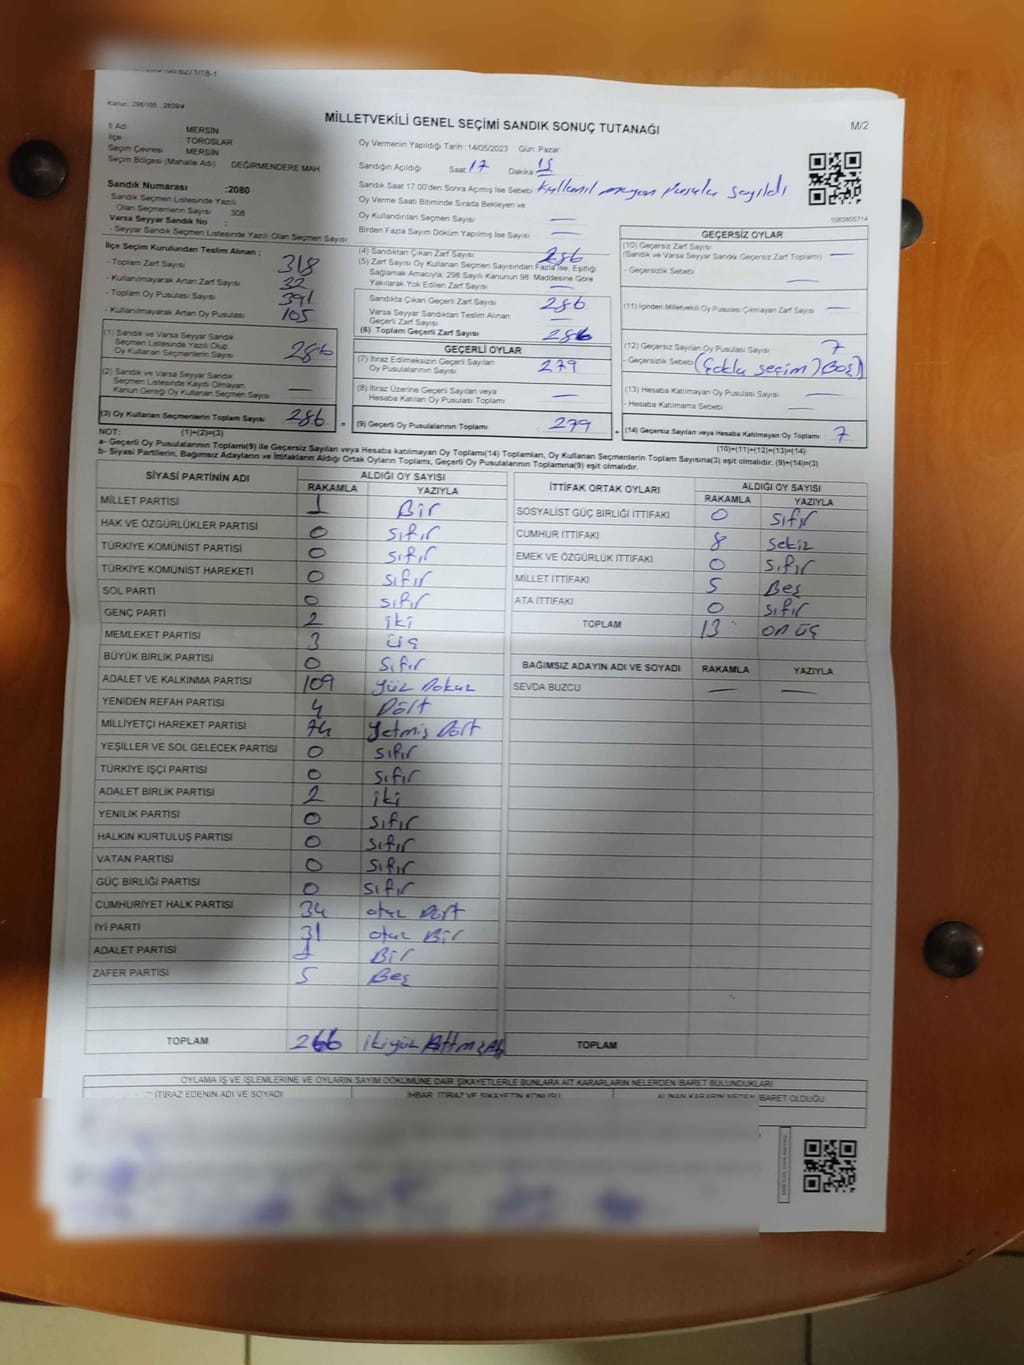 Kanun: 298/105 , 2839/4
MİLLETVEKİLİ GENEL SEÇİMİ SANDIK SONUÇ TUTANAĞI
M/2
İl Adı MERSİN
İlçe TOROSLAR
Seçim Çevresi MERSİN
Seçim Bölgesi (Mahalle Adı) DEĞİRMENDERE MAH
Oy Vermenin Yapıldığı Tarih :14/05/2023 Gün: Pazar
Sandığın Açıldığı Saat 17 Dakika 15
Sandık Saat 17:00'den Sonra Açımış İse Sebebi Kullanılmayan pusula sayıldı
Oy Verme Saati Bitiminde Sırada Bekleyen ve
Oy Kullandırılan Seçmen Sayısı —
Birden Fazla Sayım Döküm Yapılmış İse Sayısı —
1083855714
Sandık Numarası :2080
- Sandık Seçmen Listesinde Yazılı
Olan Seçmenlerin Sayısı 308
Varsa Seyyar Sandık No :
- Seyyar Sandık Seçmen Listesinde Yazılı Olan Seçmen Sayısı
İlçe Seçim Kurulundan Teslim Alınan ;
- Toplam Zarf Sayısı 318
- Kullanılmayarak Artan Zarf Sayısı 32
- Toplam Oy Pusulası Sayısı 391
- Kullanılmayarak Artan Oy Pusulası 105
(1) Sandık ve Varsa Seyyar Sandık
Seçmen Listesinde Yazılı Olup
Oy Kullanan Seçmenlerin Sayısı 286
(2) Sandık ve Varsa Seyyar Sandık
Seçmen Listesinde Kayıtlı Olmayan
Kanun Gereği Oy Kullanan Seçmen Sayısı —
(3) Oy Kullanan Seçmenlerin Toplam Sayısı 286 =
(4) Sandıktan Çıkan Zarf Sayısı 286
(5) Zarf Sayısı Oy Kullanan Seçmen Sayısından Fazla İse; Eşitliği
Sağlamak Amacıyla; 298 Sayılı Kanunun 98. Maddesine Göre
Yakılarak Yok Edilen Zarf Sayısı —
Sandıkta Çıkan Geçerli Zarf Sayısı 286
Varsa Seyyar Sandıktan Teslim Alınan
Geçerli Zarf Sayısı —
(6) Toplam Geçerli Zarf Sayısı 286
GEÇERLİ OYLAR
(7) İtiraz Edilmeksizin Geçerli Sayılan
Oy Pusulalarının Sayısı 279
(8) İtiraz Üzerine Geçerli Sayılan veya
Hesaba Katılan Oy Pusulası Toplamı —
(9) Geçerli Oy Pusulalarının Toplamı 279 +
GEÇERSİZ OYLAR
(10) Geçersiz Zarf Sayısı
(Sandık ve Varsa Seyyar Sandık Geçersiz Zarf Toplamı) —
- Geçersizlik Sebebi —
(11) İçinden Milletvekili Oy Pusulası Çıkmayan Zarf Sayısı —
(12) Geçersiz Sayılan Oy Pusulası Sayısı 7
- Geçersizlik Sebebi (Çoklu seçim)(Boş)
(13) Hesaba Katılmayan Oy Pusulası Sayısı —
- Hesaba Katılmama Sebebi —
(14) Geçersiz Sayılan veya Hesaba Katılmayan Oy Toplamı 7
NOT: (1)+(2)=(3)
(10)+(11)+(12)+(13)=(14)
a- Geçerli Oy Pusulalarının Toplamı(9) ile Geçersiz Sayılan veya Hesaba katılmayan Oy Toplamı(14) Toplamları, Oy Kullanan Seçmenlerin Toplam Sayısına(3) eşit olmalıdır. (9)+(14)=(3)
b- Siyasi Partilerin, Bağımsız Adayların ve İttifakların Aldığı Ortak Oyların Toplamı, Geçerli Oy Pusulalarının Toplamına(9) eşit olmalıdır.
SİYASİ PARTİNİN ADI ALDIĞI OY SAYISI
RAKAMLA YAZIYLA
MİLLET PARTİSİ 1 Bir
HAK VE ÖZGÜRLÜKLER PARTİSİ 0 sıfır
TÜRKİYE KOMÜNİST PARTİSİ 0 sıfır
TÜRKİYE KOMÜNİST HAREKETİ 0 sıfır
SOL PARTİ 0 sıfır
GENÇ PARTİ 2 iki
MEMLEKET PARTİSİ 3 üç
BÜYÜK BİRLİK PARTİSİ 0 sıfır
ADALET VE KALKINMA PARTİSİ 109 yüz Dokuz
YENİDEN REFAH PARTİSİ 4 Dört
MİLLİYETÇİ HAREKET PARTİSİ 74 yetmiş Dört
YEŞİLLER VE SOL GELECEK PARTİSİ 0 sıfır
TÜRKİYE İŞÇİ PARTİSİ 0 sıfır
ADALET BİRLİK PARTİSİ 2 iki
YENİLİK PARTİSİ 0 sıfır
HALKIN KURTULUŞ PARTİSİ 0 sıfır
VATAN PARTİSİ 0 sıfır
GÜÇ BİRLİĞİ PARTİSİ 0 sıfır
CUMHURİYET HALK PARTİSİ 34 otuz Dört
İYİ PARTİ 31 otuz Bir
ADALET PARTİSİ 1 Bir
ZAFER PARTİSİ 5 Beş
TOPLAM 266 ikiyüz
İTTİFAK ORTAK OYLARI ALDIĞI OY SAYISI
RAKAMLA YAZIYLA
SOSYALİST GÜÇ BİRLİĞİ İTTİFAKI 0 sıfır
CUMHUR İTTİFAKI 8 sekiz
EMEK VE ÖZGÜRLÜK İTTİFAKI 0 sıfır
MİLLET İTTİFAKI 5 Beş
ATA İTTİFAKI 0 sıfır
TOPLAM 13 on üç
BAĞIMSIZ ADAYIN ADI VE SOYADI RAKAMLA YAZIYLA
SEVDA BUZCU — —
TOPLAM
OYLAMA İŞ VE İŞLEMLERİNE VE OYLARIN SAYIM DÖKÜMÜNE DAİR ŞİKAYETLERLE BUNLARA AİT KARARLARIN NELERDEN İBARET BULUNDUKLARI
İTİRAZ EDENİN ADI VE SOYADI İHBAR, İTİRAZ VE ŞİKAYETİN KONUSU ALINAN KARARIN NEDEN İBARET OLDUĞU